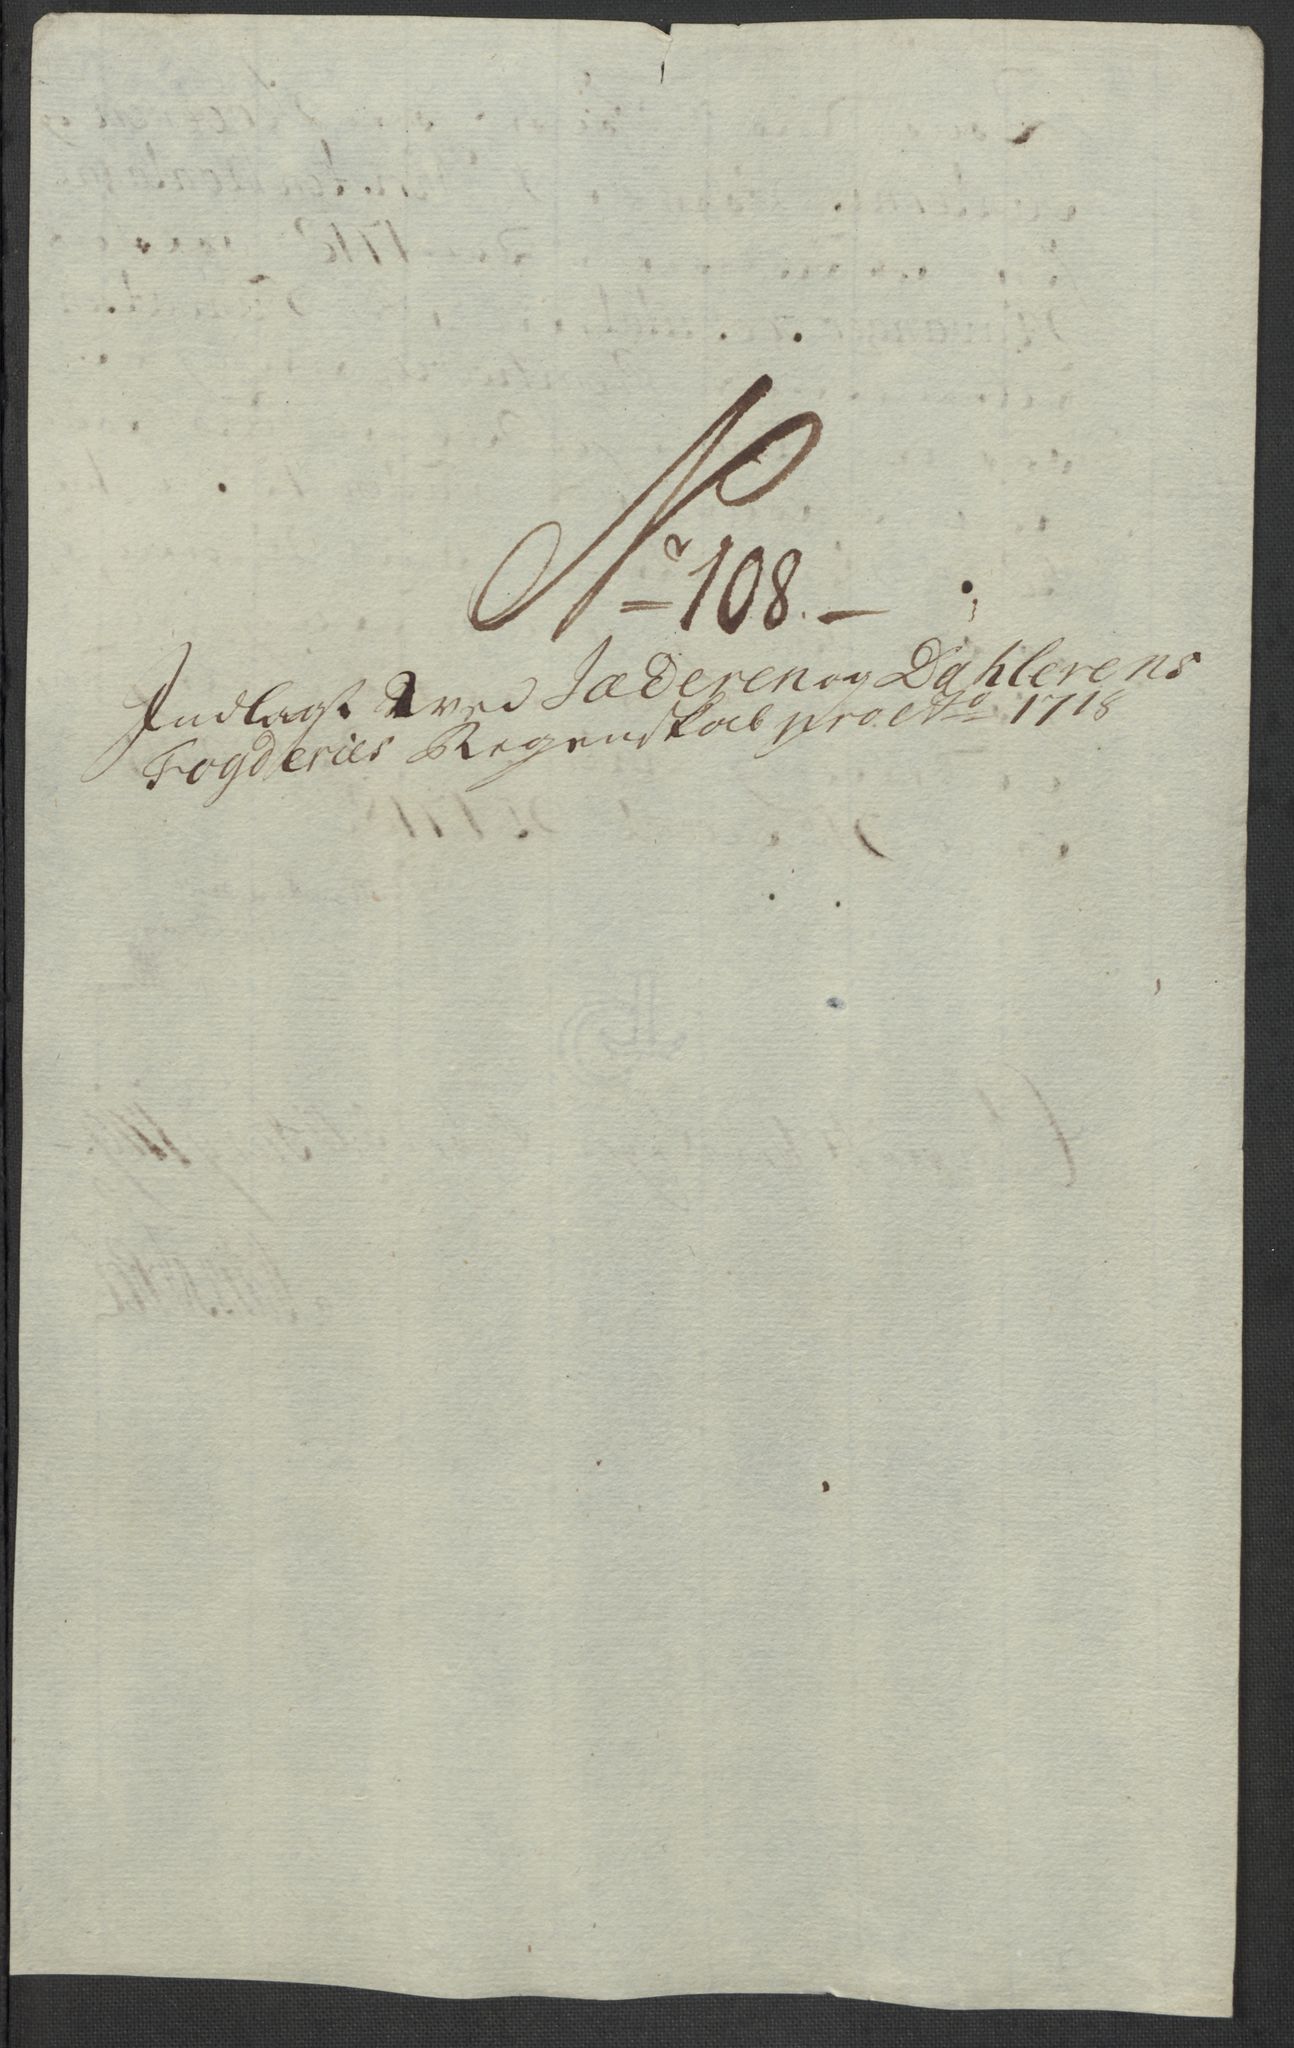 No 108.
Indlagt ved Jæderen og Dahlerens
Fogderies Regenskab pro Ao 1718